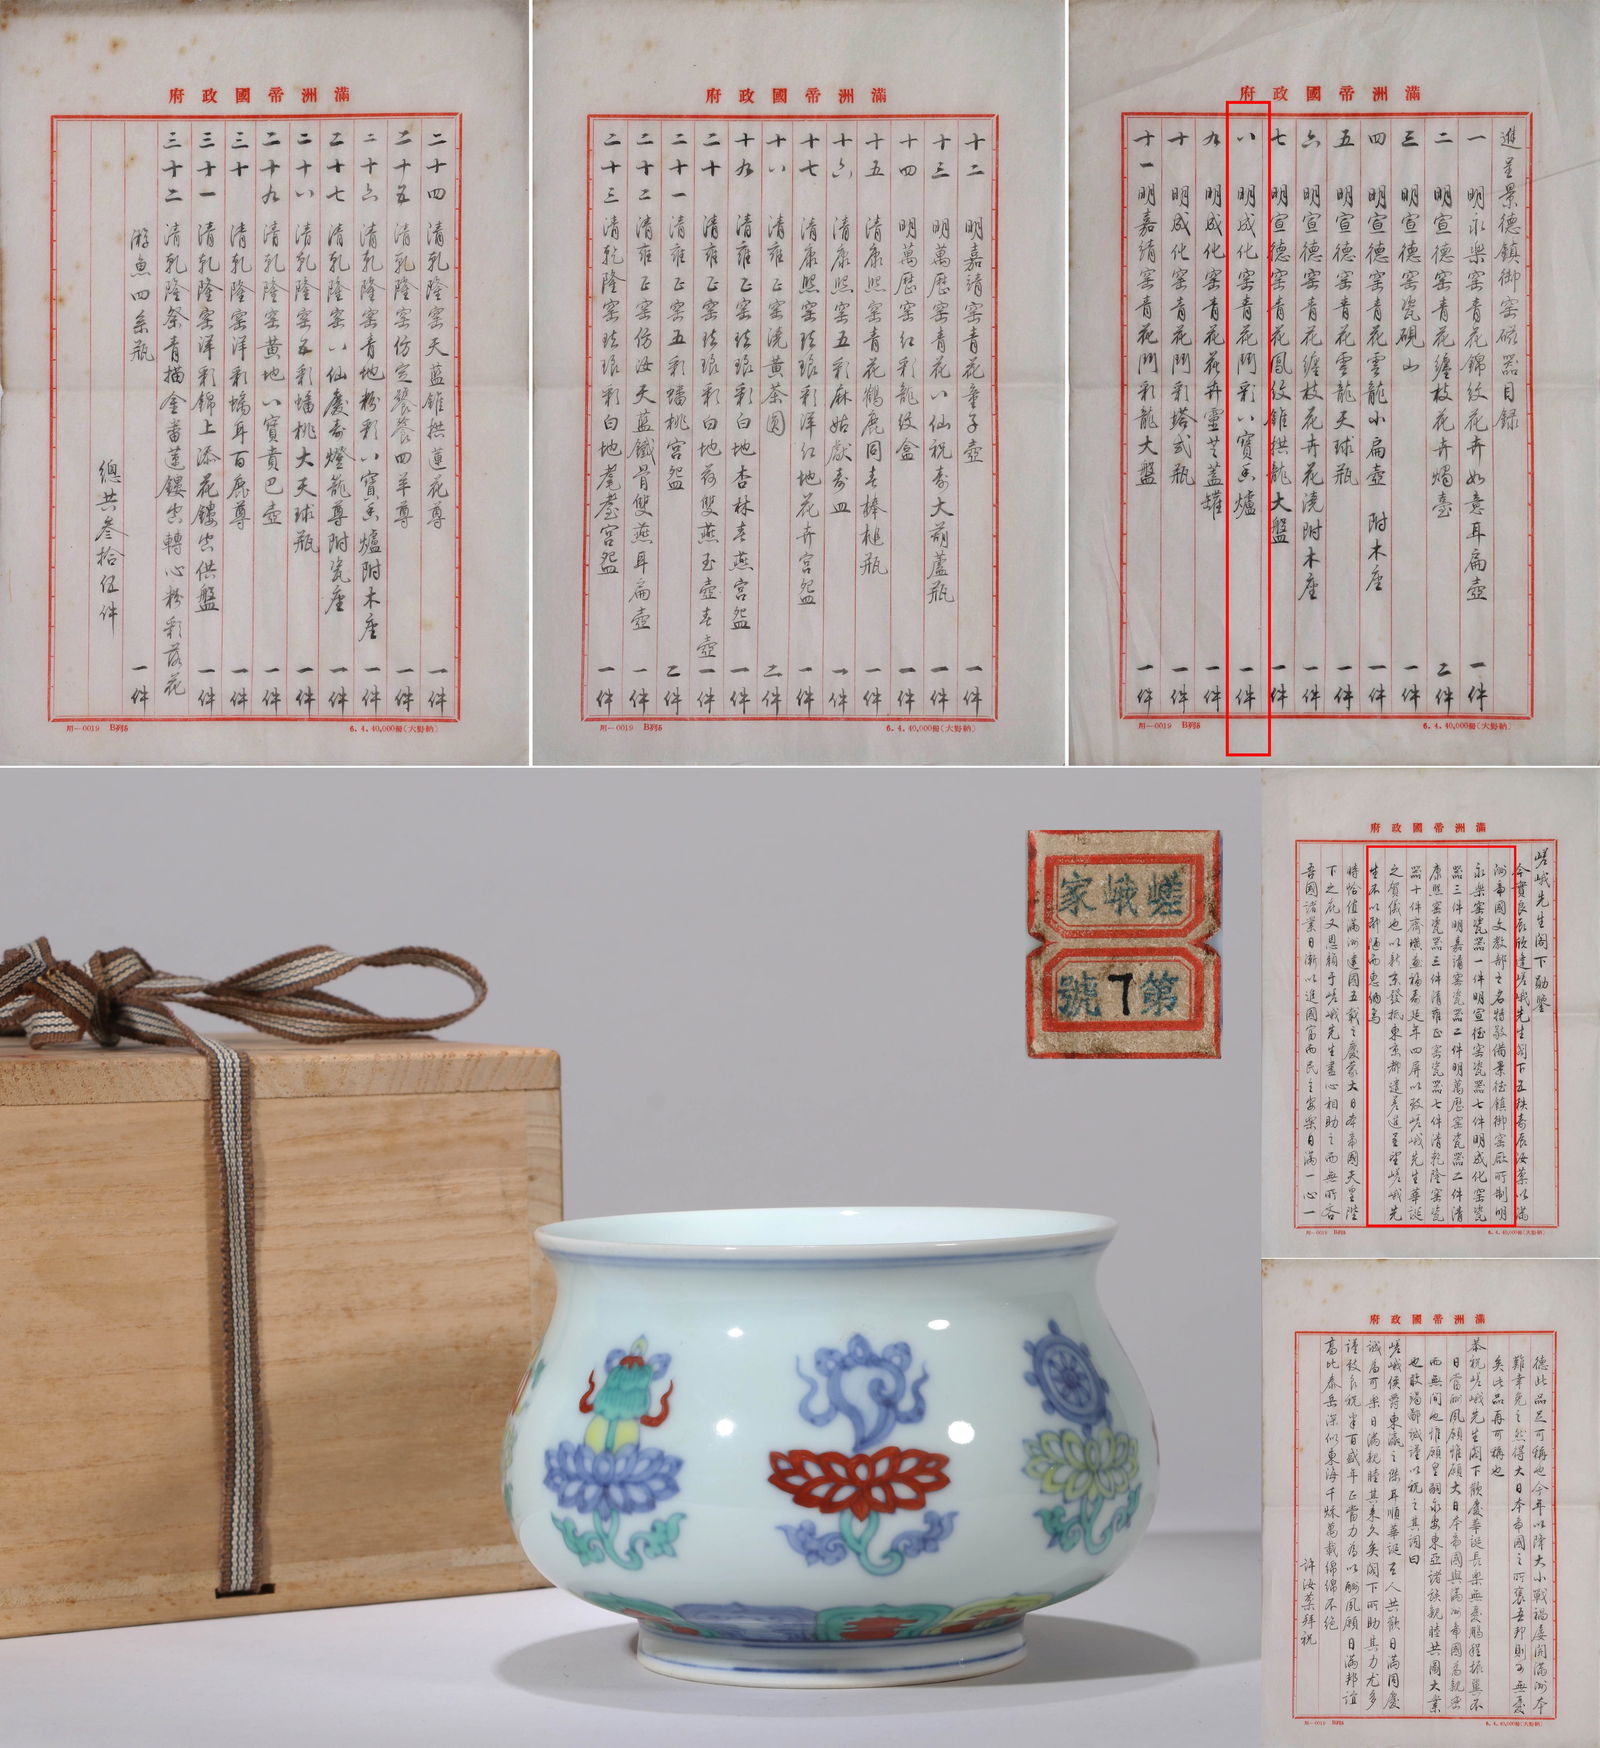 滿洲帝國政府
進呈景德鎮御窑磁器目録
一 明永樂窑青花錦紋花卉如意耳扁壺 一件
二 明宣德窑青花纏枝花卉燭臺 二件
三 明宣德窑瓷硯山 一件
四 明宣德窑青花雲龍小扁壺 附木座 一件
五 明宣德窑青花雲龍天球瓶 一件
六 明宣德窑青花纏枝花卉花澆附木座 一件
七 明宣德窑青花鳳紋錐拱龍大盤 一件
八 明成化窑青花鬥彩八寶香爐 一件
九 明成化窑青花花卉靈芝蓋罐 一件
十 明成化窑青花鬥彩塔式瓶 一件
十一 明嘉靖窑青花鬥彩龍大盤 一件
用—0019 B列5
6. 4. 40,000冊(大野納)
滿洲帝國政府
十二 明嘉靖窑青花童子壺 一件
十三 明萬歷窑青花八仙祝壽大葫蘆瓶 一件
十四 明萬歷窑紅彩龍紋盒 一件
十五 清康熙窑青花鶴鹿同春棒槌瓶 一件
十六 清康熙窑五彩麻姑獻壽皿 一件
十七 清康熙窑珐琅彩洋紅地花卉宫盌 一件
十八 清雍正窑澆黄茶圓 二件
十九 清雍正窑珐琅彩白地杏林春燕宫盌 一件
二十 清雍正窑珐琅彩白地荷雙燕玉壺春壺 一件
二十一 清雍正窑五彩蟠桃宫盌 二件
二十二 清雍正窑仿汝天藍鐵骨雙燕耳扁壺 一件
二十三 清乾隆窑珐琅彩白地耄耋宫盌 一件
用—0019 B列5
6. 4. 40,000冊(大野納)
滿洲帝國政府
二十四 清乾隆窑天藍錐拱蓮花尊 一件
二十五 清乾隆窑仿定饕餮四羊尊 一件
二十六 清乾隆窑青地粉彩八寶香爐附木座 一件
二十七 清乾隆窑八仙慶壽燈籠尊附瓷座 一件
二十八 清乾隆窑五彩蟠桃大天球瓶 一件
二十九 清乾隆窑黄地八寶賁巴壺 一件
三十 清乾隆窑洋彩螭耳百鹿尊 一件
三十一 清乾隆窑洋彩錦上添花鏤空供盤 一件
三十二 清乾隆祭青描金番蓮鏤空轉心粉彩落花
游魚四系瓶 一件
總共叁拾伍件
用—0019 B列5
6. 4. 40,000冊(大野納)
嵯峨家
第7號
滿洲帝國政府
嵯峨先生閣下勛鑒
今實良辰欣逢嵯峨先生閣下五秩壽辰汝棻以滿
洲帝國文教部之名特敬備景德鎮御窑廠所制明
永樂窑瓷器一件明宣德窑瓷器七件明成化窑瓷
器三件明嘉靖窑瓷器二件明萬歷窑瓷器二件清
康熙窑瓷器三件清雍正窑瓷器七件清乾隆窑瓷
器十件齊璜並福壽延年四屏以致嵯峨先生華誕
之賀儀也以新京發抵東京都遣差進呈望嵯峨先
生不以鄙陋而惠納焉
時恰值滿洲建國五載之慶蒙大日本帝國天皇陛
下之庇又恩賴于嵯峨先生盡心相助之而無所吝
吾國諸業日漸以進國富而民之安樂日滿一心一
用—0019 B列5
6. 4. 40,000冊(大野納)
滿洲帝國政府
德此品足可稱也今年以降大小戰禍屢開滿洲本
難幸免之然得大日本帝國之所褒吾邦則可無憂
矣此品再可稱也
恭祝嵯峨先生閣下歡慶華誕長樂無憂鵬程振翼不
日當酬夙願惟願大日本帝國與滿洲帝國為親密
而無間也惟願皇嗣永安東亞諸族親睦共圖大業
也敢竭鄙誠謹以祝之其詞曰
嵯峨侯爵東瀛之傑耳順華誕百人共歡日滿同慶
誠為可樂日滿親睦其來久矣閣下所助其力尤多
謹致良祝半百盛年正當力為以酬夙願日滿邦誼
高比泰岳深似東海千秋萬載綿綿不絶
許汝棻拜祝
用—0019 B列5
6. 4. 40,000冊(大野納)